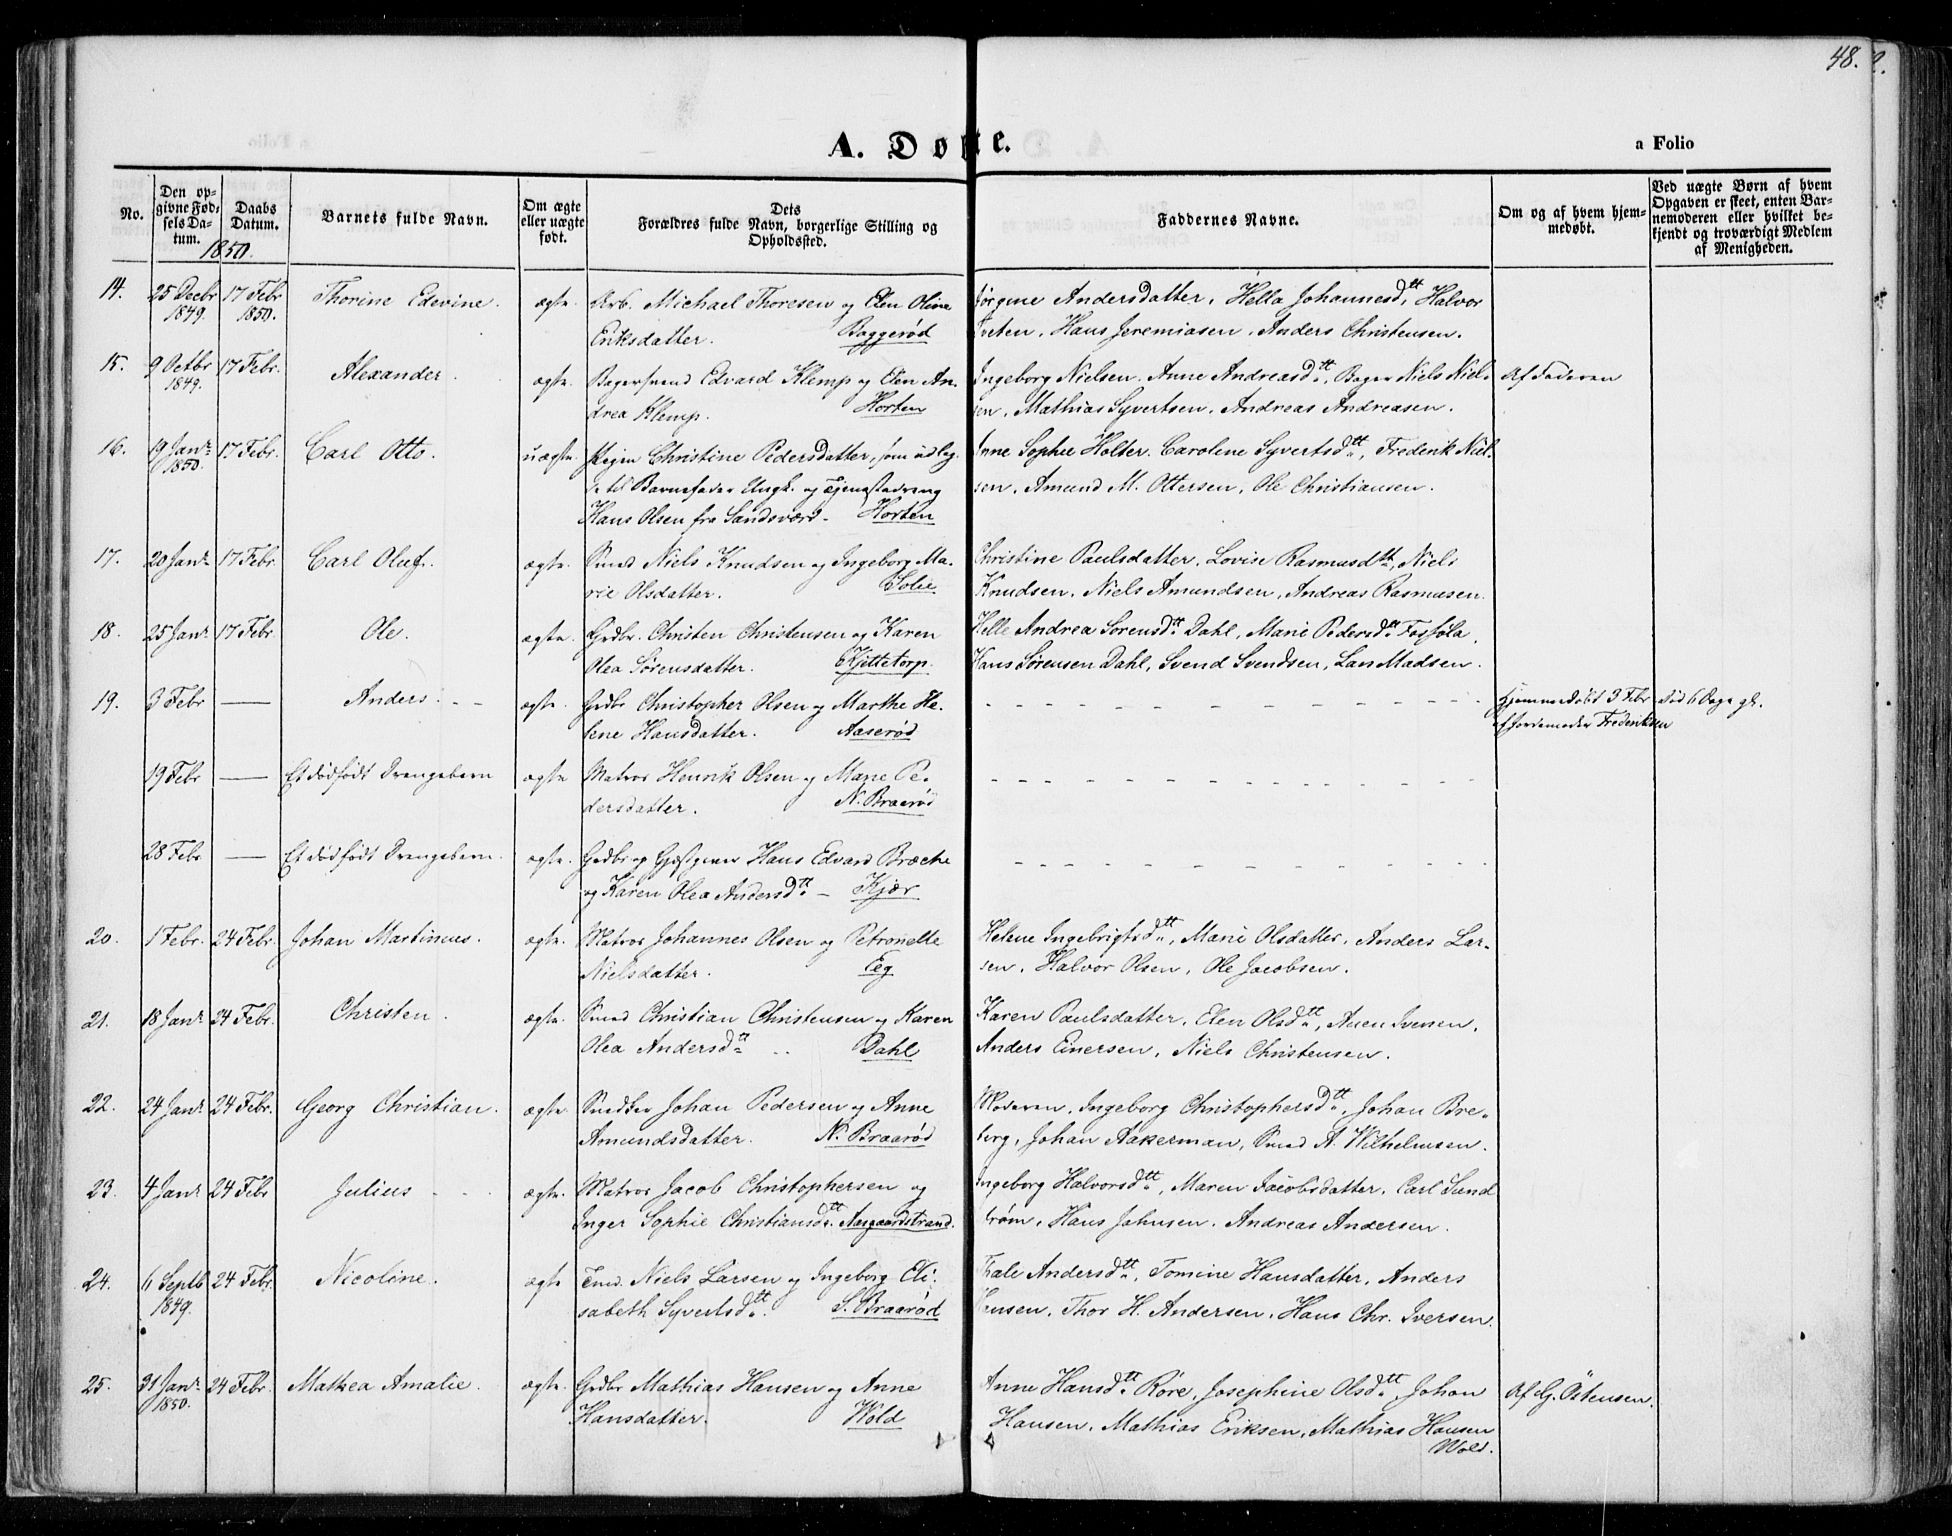 48.
A. Døbte.
a Folio
No.
Den op-
givne Fød-
sels Da-
tum.
Daabs
Datum.
Barnets fulde Navn.
Om ægte
eller uægte
født.
Dets
Forældres fulde Navn, borgerlige Stilling og
Opholdssted.
Faddernes Navne.
Om og af hvem hjem-
medøbt.
Ved uægte Børn af hvem
Opgaven er skeet, enten Bar-
nemoderen eller hvilket be-
kjendt og troværdigt Medlem
af Menigheden.
1850.
14. 25 Decbr 17 Febr Thorine Edevine. ægte. Arb. Michael Thoresen og Elen Oline Jørgine Andersdatter, Hella Johannesdtt, Halvor
1849. 1850. Eriksdatter. Baggerød Tveten, Hans Jeremiasen, Anders Christensen.
15. 9 Octbr 17 Febr. Alexander. ægte. Bagersvend Edvard Klemp og Elen An- Ingeborg Nielsen, Anne Andreasdtt, Bager Niels Niel- Af Faderen
1849. drea Klemp. Horten sen, Mathias Syvertsen, Andreas Andreasen.
16. 19 Janr 17 Febr. Carl Otto. uægte. Pigen Christine Pedersdatter, som udlag- Anne Sophie Holter, Carolene Syvertsdtt, Frederik Niel-
1850. de til Barnefader Ungk. og Tjenestedreng sen, Amund M. Ottersen, Ole Christiansen.
Hans Olsen fra Sandsværd - Horten
17. 20 Janr 17 Febr. Carl Oluf. ægte. Smed Niels Knudsen og Ingeborg Ma- Christine Paulsdatter, Lovise Rasmusdtt, Niels
rie Olsdatter. Solie Knudsen, Niels Amundsen, Andreas Rasmusen.
18. 25 Janr 17 Febr. Ole. ægte. Grdbr. Christen Christensen og Karen Helle Andrea Sorensdtt Dahl, Marie Pedersdtt
Olea Sørensdatter. Kjettetorp. Hans Sørensen Dahl, Svend Svendsen, Lars Madsen.
19. 3 Febr — Anders. ægte. Grdbr Christopher Olsen og Marthe He- Hjemmedøbt 3 Febr død 6 Dage gl.
lene Hansdatter. Aaserød af Jordemoder Frederiksen
19 Febr — Et dødfødt Drengebarn ægte Matros Henrik Olsen og Marie Pe-
dersdatter. N. Braarød
28 Febr — Et dødfødt Drengebarn. ægte. Grdbr og Gjæstgiver Hans Edvard Bræche
og Karen Olea Andersdtt – Kjær
20. 1 Febr. 24 Febr. Johan Martinius. ægte. Matros Johannes Olsen og Petronelle Helene Ingebrigtsdtt, Marie Olsdatter, Anders Lar-
Nielsdatter. Eeg sen, Halvor Olsen, Ole Jacobsen.
21. 18 Janr 24 Febr. Christen. ægte. Smed Christian Christensen og Karen Karen Paulsdatter, Elen Olsdtt, Auen Ivensen,
Olea Andersdtt Dahl Anders Einersen, Niels Christensen.
22. 24 Janr 24 Febr. Georg Christian. ægte. Snedker Johan Pedersen og Anne Moderen, Ingeborg Christophersdtt, Johan Bre-
Amundsdatter. N. Braarød berg, Johan Aakerman, Smed A. Wilhelmsen.
23. 4 Janr 24 Febr Julius ægte. Matros Jacob Christophersen og Ingeborg Halvorsdtt, Maren Jacobsdatter, Carl Sund
Inger Sophie Christiansdtt. Aasgaardstrand. trøm, Hans Johnsen, Andreas Andersen.
24. 6 Septb 24 Febr. Nicoline. ægte Tmd. Niels Larsen og Ingeborg Eli- Thale Andersdtt, Tomine Hansdatter, Anders
1849. sabeth Syvertsdtt. S. Braarød Hansen, Thor H. Andersen, Hans Chr. Iversen.
25. 31 Janr 24 Febr. Mathea Amalie. ægte. Grdbr Mathias Hansen og Anne Anne Hansdtt Røre, Josephine Olsdtt, Johan Af G. Östensen.
1850. Hansdatter. Wold Hansen, Mathias Eriksen, Mathias Hansen
Wold.